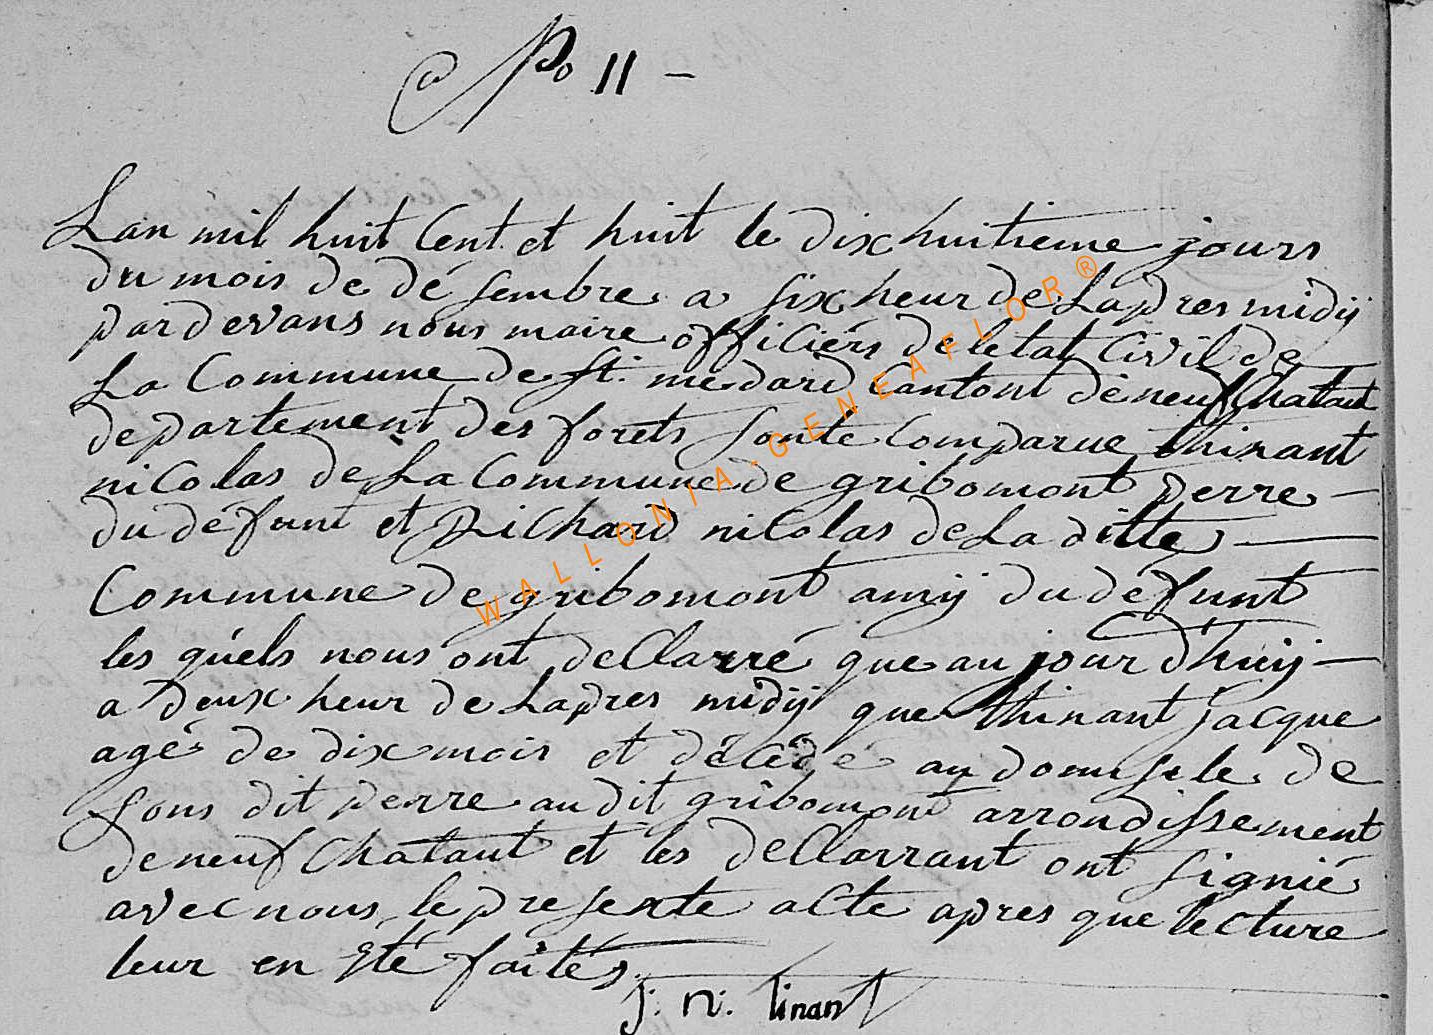 No 11 -
Lan mil huit Cent et huit le dixhuitieme jours
du mois de dé sembre a sixheur de Lapres midij
pardevans nous maire officiérs de letat Civil de
La Commune de St. medard Cantont de neuf Chataut
departement des forets sonte Comparue thinant
nicolas de La Commune de gribomont perre -
du défunt et Richard nicolas de La ditte -
Commune de gribomont amij du défunt
les quéls nous ont deClarré que au jour d'huij -
a deux heur de Lapres midij que thinant jacque
agé de dix mois et décédé au domisile de
sons dit perre au dit gribomont arrondissement
de neuf Chataut et les deClarrant ont signié
avec nous le presente acte apres que lecture
leur en été faites
j: n: tinant
WALLONIA-GENEAFLOR®